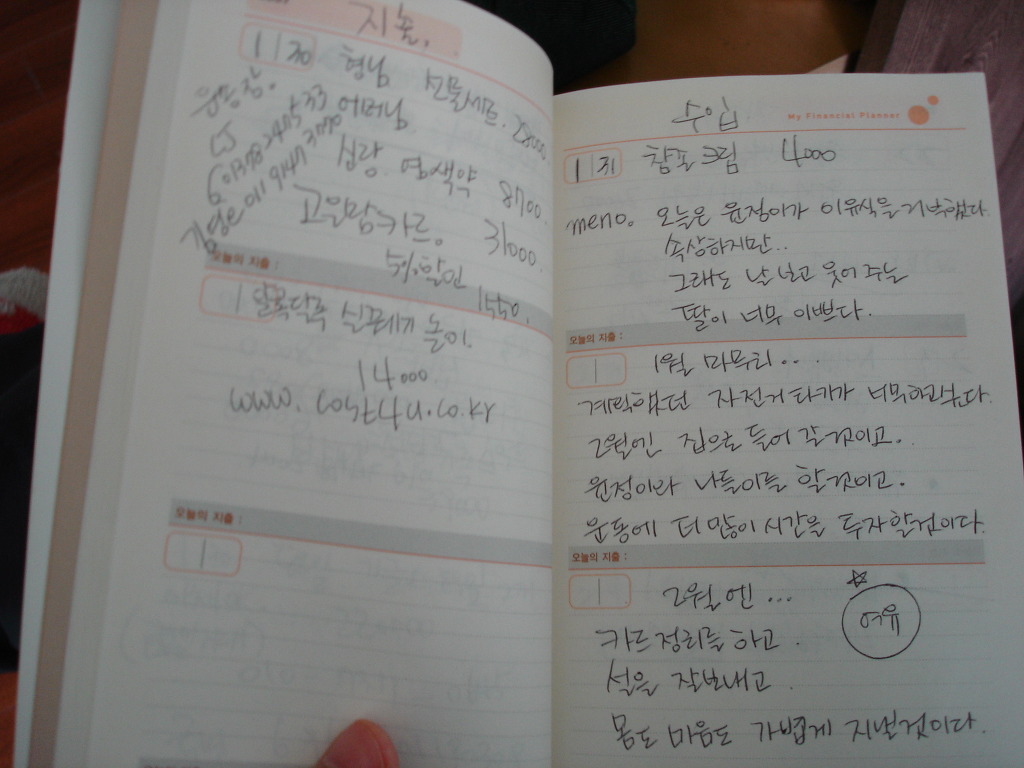 지출.
1 30 형님 선물시드. 28000.
어머님
신랑. 염색약 8700.
고일맘카르. 31000.
5% 할인 1550.
오늘의 지출 :
1 달록닥록 실꾸러기 놀이.
14000.
www.cost4u.co.kr
오늘의 지출 :
1
수입
My Financial Planner
1 31 참포크림 4000
memo. 오늘은 윤정이가 이유식을 거부했다.
속상하지만..
그래도 날 보고 웃어 주는
딸이 너무 이쁘다.
오늘의 지출 :
1 1월 마무리...
계획했던 자전거 타기가 너무 아쉽다.
2월엔 집으로 들어 갈것이고.
윤정이랑 나들이를 할것이고.
운동에 더 많이 시간을 투자할것이다.
오늘의 지출 :
1 2월엔...
여유
카드정리를 하고.
설을 잘보내고.
몸도 마음도 가볍게 지낼것이다.